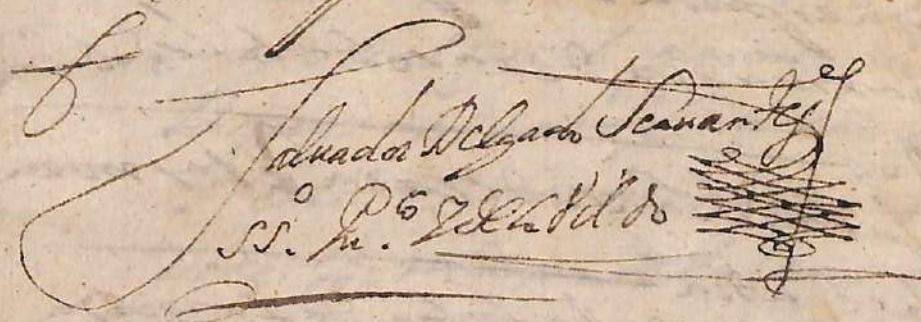 Saluador Delgado Seruantes
ss.º pu.º y de Cabildo